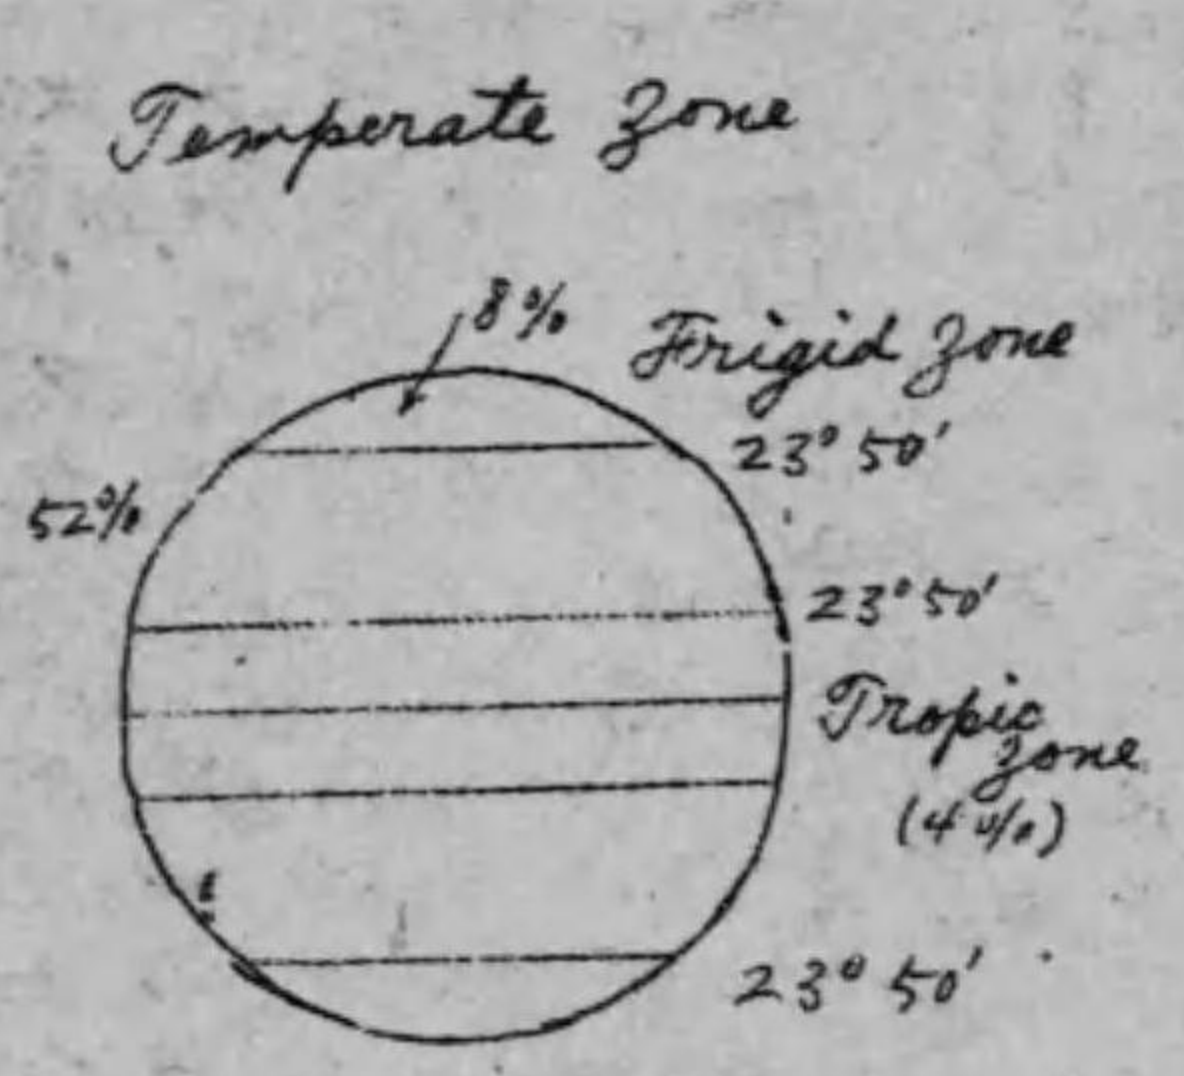 Temperate Zone
8%
Frigid Zone
23° 50'
52%
23° 50'
Tropic
Zone
(4%)
23° 50'